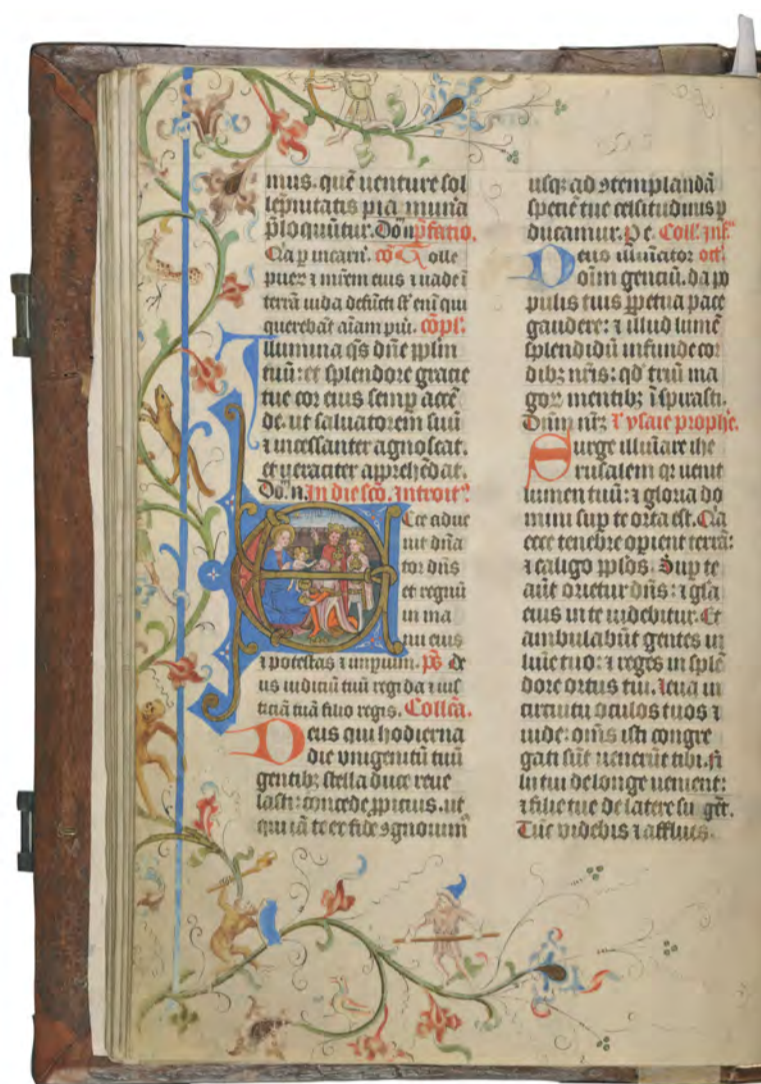 mus. quē uenture sol
lēpnitatis pia mun̄a
p̄loquūtur. Dōn p̄fatio.
Q̄ia p incarn̄. cō Tolle
puer̄ ⁊ mr̄em eius ⁊ uade ī
terrā iuda defūcti sr̄ enī qui
querebāt aīam puı̄. cōpl̄.
Illumina qs̄ dn̄e ppl̄m
tuū: et splendore gratie
tue cor eius semp accē
de. ut saluatorem suū
⁊ incessanter agnoscat.
et ueraciter appreh̄ēdat.
Dō. n. In die sc̄o. Introit᷒
Ecce adue
nit dn̄a
tor dn̄s
et regnū
in ma
nu eius
⁊ potestas ⁊ imp̄ium. ps̄ De
us iudiciū tuū regi da ⁊ ius
ticiā tuā filio regis. Collc̄a.
Deus qui hodierna
die vnigenitū tuū
gentibꝫ stella duce reue
lasti: concede ꝓpitius. ut
qui iā te ex fide ꝯgnouim᷒
usqꝫ ad ꝯtemplandā
speciē tue celsitudinis ꝑ
ducamur. P e. Coll᷒. inf᷒
Deus illuīator off᷒.
oīm genciū. da po
pulis tuis ꝑpetua pace
gaudere: ⁊ illud lumē
splendidū infunde cor
dibꝫ nr̄is: qd̄ triū ma
goꝝ mentibꝫ īspirasti.
Dn̄m nr̄ꝫ Ysaie prophe᷒.
Surge illūiare ihe
rusalem qꝛ uenit
lumen tuū: ⁊ gloria do
mini sup te orta est. Q̄ia
ecce tenebre opient terrā:
⁊ caligo ppl̄os. Sup te
aūt orietur dn̄s: ⁊ gl̄a
eius in te uidebitur. Et
ambulabūt gentes in
luīe tuo: ⁊ reges in splē
dore ortus tui. Leua in
circuitu oculos tuos ⁊
uide: om̄s isti congre
gati sūt uenerūt tibi. fi
lii tui de longe uenient:
⁊ filie tue de latere su᷒ gēt.
Tūc uidebis ⁊ afflues.